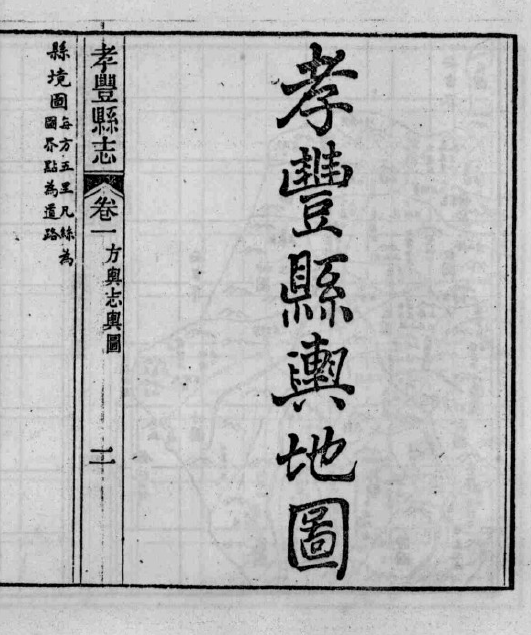 孝豐縣輿地圖
孝豐縣志
卷一
方輿志輿圖
二
縣境圖
每方五里凡絲為
圖界點為道路